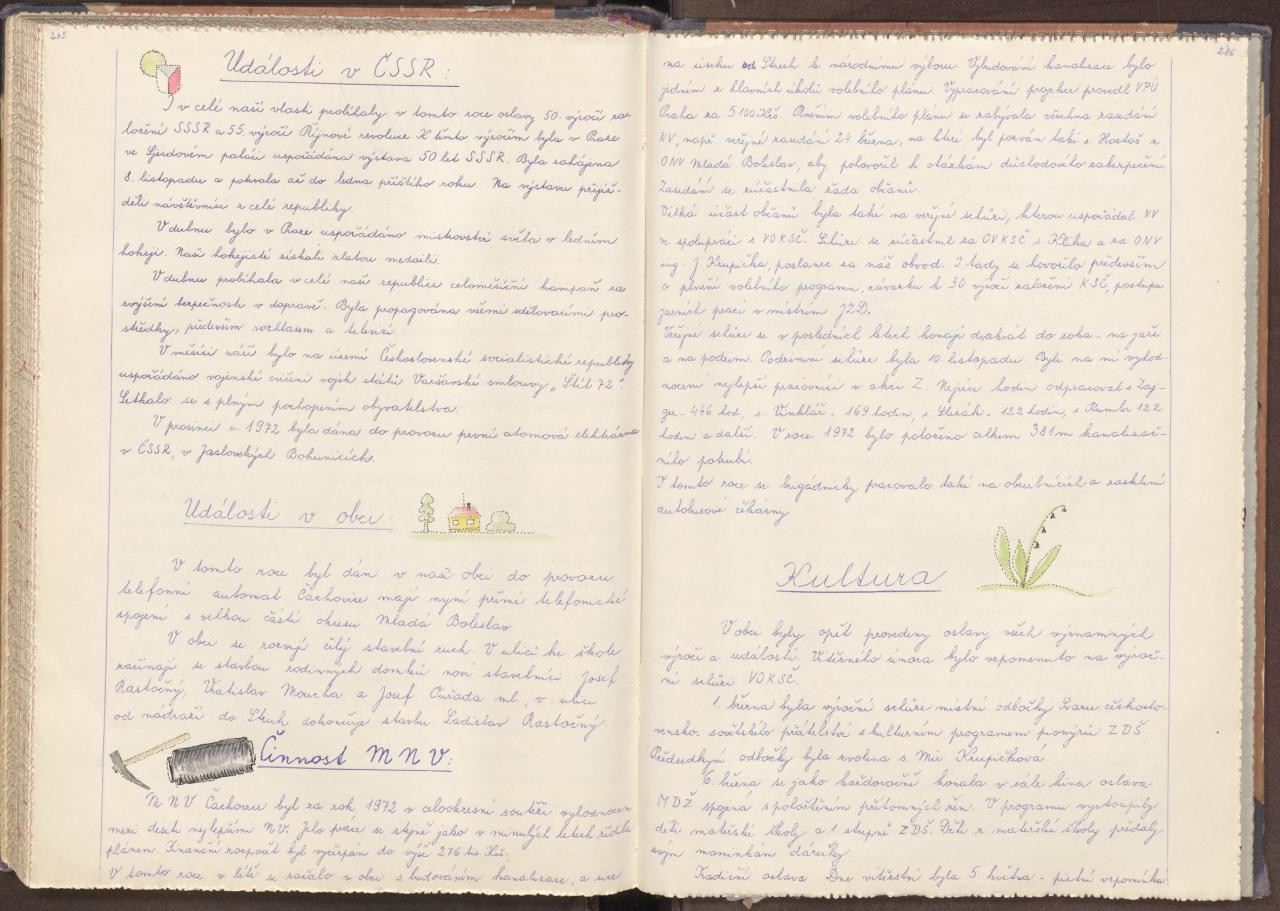 205
Události v ČSSR:
I v celé naší vlasti probíhaly v tomto roce oslavy 50. výročí za-
ložení SSSR a 55. výročí Říjnové revoluce. K těmto výročím byla v Praze
ve Sjezdovém paláci uspořádána výstava 50 let SSSR. Byla zahájena
8. listopadu a potrvala až do ledna příštího roku. Na výstavu přijíž-
děli návštěvníci z celé republiky.
V dubnu bylo v Praze uspořádáno mistrovství světa v ledním
hokeji. Naši hokejisté získali zlatou medaili.
V dubnu probíhala v celé naší republice celoměsíční kampaň za
zvýšení bezpečnosti v dopravě. Byla propagována všemi sdělovacími pro-
středky, především rozhlasem a televizí.
V měsíci září bylo na území Československé socialistické republiky
uspořádáno vojenské cvičení vojsk států Varšavské smlouvy „Štít 72".
Setkalo se s plným pochopením obyvatelstva.
V prosinci r. 1972 byla dána do provozu první atomová elektrárna
v ČSSR, v Jaslovských Bohunicích.
Události v obci:
V tomto roce byl dán v naší obci do provozu
telefonní automat. Čachovice mají nyní přímé telefonické
spojení s velkou částí okresu Mladá Boleslav
V obci se rozvíjí čilý stavební ruch. V ulici ke škole
začínají se stavbou rodinných domků noví stavebníci: Josef
Rastočný, Vratislav Moucha a Josef Ouřada ml., v ulici
od nádraží do Struh dokončuje stavbu Ladislav Rastočný.
Činnost MNV:
MNV Čachovice byl za rok 1972 v celookresní soutěži vyhodnocen
mezi deseti nejlepšími NV. Jeho práce se stejně jako v minulých letech řídila
plánem. Finanční rozpočet byl vyčerpán do výše 276 tis. Kčs.
V tomto roce v létě se začalo v obci s budováním kanalizace, a sice
206
na úseku od Struh k národnímu výboru Vybudování kanalizace bylo
jedním z hlavních úkolů volebního plánu. Vypracování projektu provedl VPÚ
Praha za 5100 Kčs. Plněním volebního plánu se zabývala všechna zasedání
NV, např. veřejné zasedání 24. března, na které byl pozván také s. Hostaš z
ONV Mladá Boleslav, aby pohovořil k otázkám důchodového zabezpečení.
Zasedání se zúčastnila řada občanů.
Velká účast občanů byla také na veřejné schůzi, kterou uspořádal NV
ve spolupráci s VOKSČ. Schůze se zúčastnil za OVKSČ s. Klika a za ONV
ing. J. Krupička, poslanec za náš obvod. I tady se hovořilo především
o plnění volebního programu, závazku k 50 výročí založení KSČ, postupu
jarních prací v místním JZD.
Veřejné schůze se v posledních letech konají dvakrát do roka - na jaře
a na podzim. Podzimní schůze byla 10. listopadu. Byli na ní vyhod-
noceni nejlepší pracovníci v akci Z. Nejvíce hodin odpracoval s. Zaj-
- 446 hod, s. Vinklář - 169 hodin, s. - 122 hodin, s. Rumbr 122
hodin a další. V roce 1972 bylo položeno celkem 381 m kanalizač-
ního potrubí.
V tomto roce se brigádnicky pracovalo také na obrubnících a zasklení
autobusové čekárny
Kultura
V obci byly opět provedeny oslavy všech významných
výročí a událostí. Vítězného února bylo vzpomenuto na výroč-
ní schůzi VOKSČ.
1. března byla výroční schůze místní odbočky Svazu českoslo-
vensko. sovětského přátelství s kulturním programem pionýrů ZDŠ.
Předsedkyní odbočky byla zvolena s. Mir. Krupičková
6. března se jako každoročně konala v sále kina oslava
MDŽ spojená s pohoštěním přítomných žen. V programu vystoupily
děti mateřské školy a 1 stupně ZDŠ. Děti z mateřské školy předaly
svým maminkám dárečky.
Tradiční oslava Dne vítězství byla 5 května - pietní vzpomínka